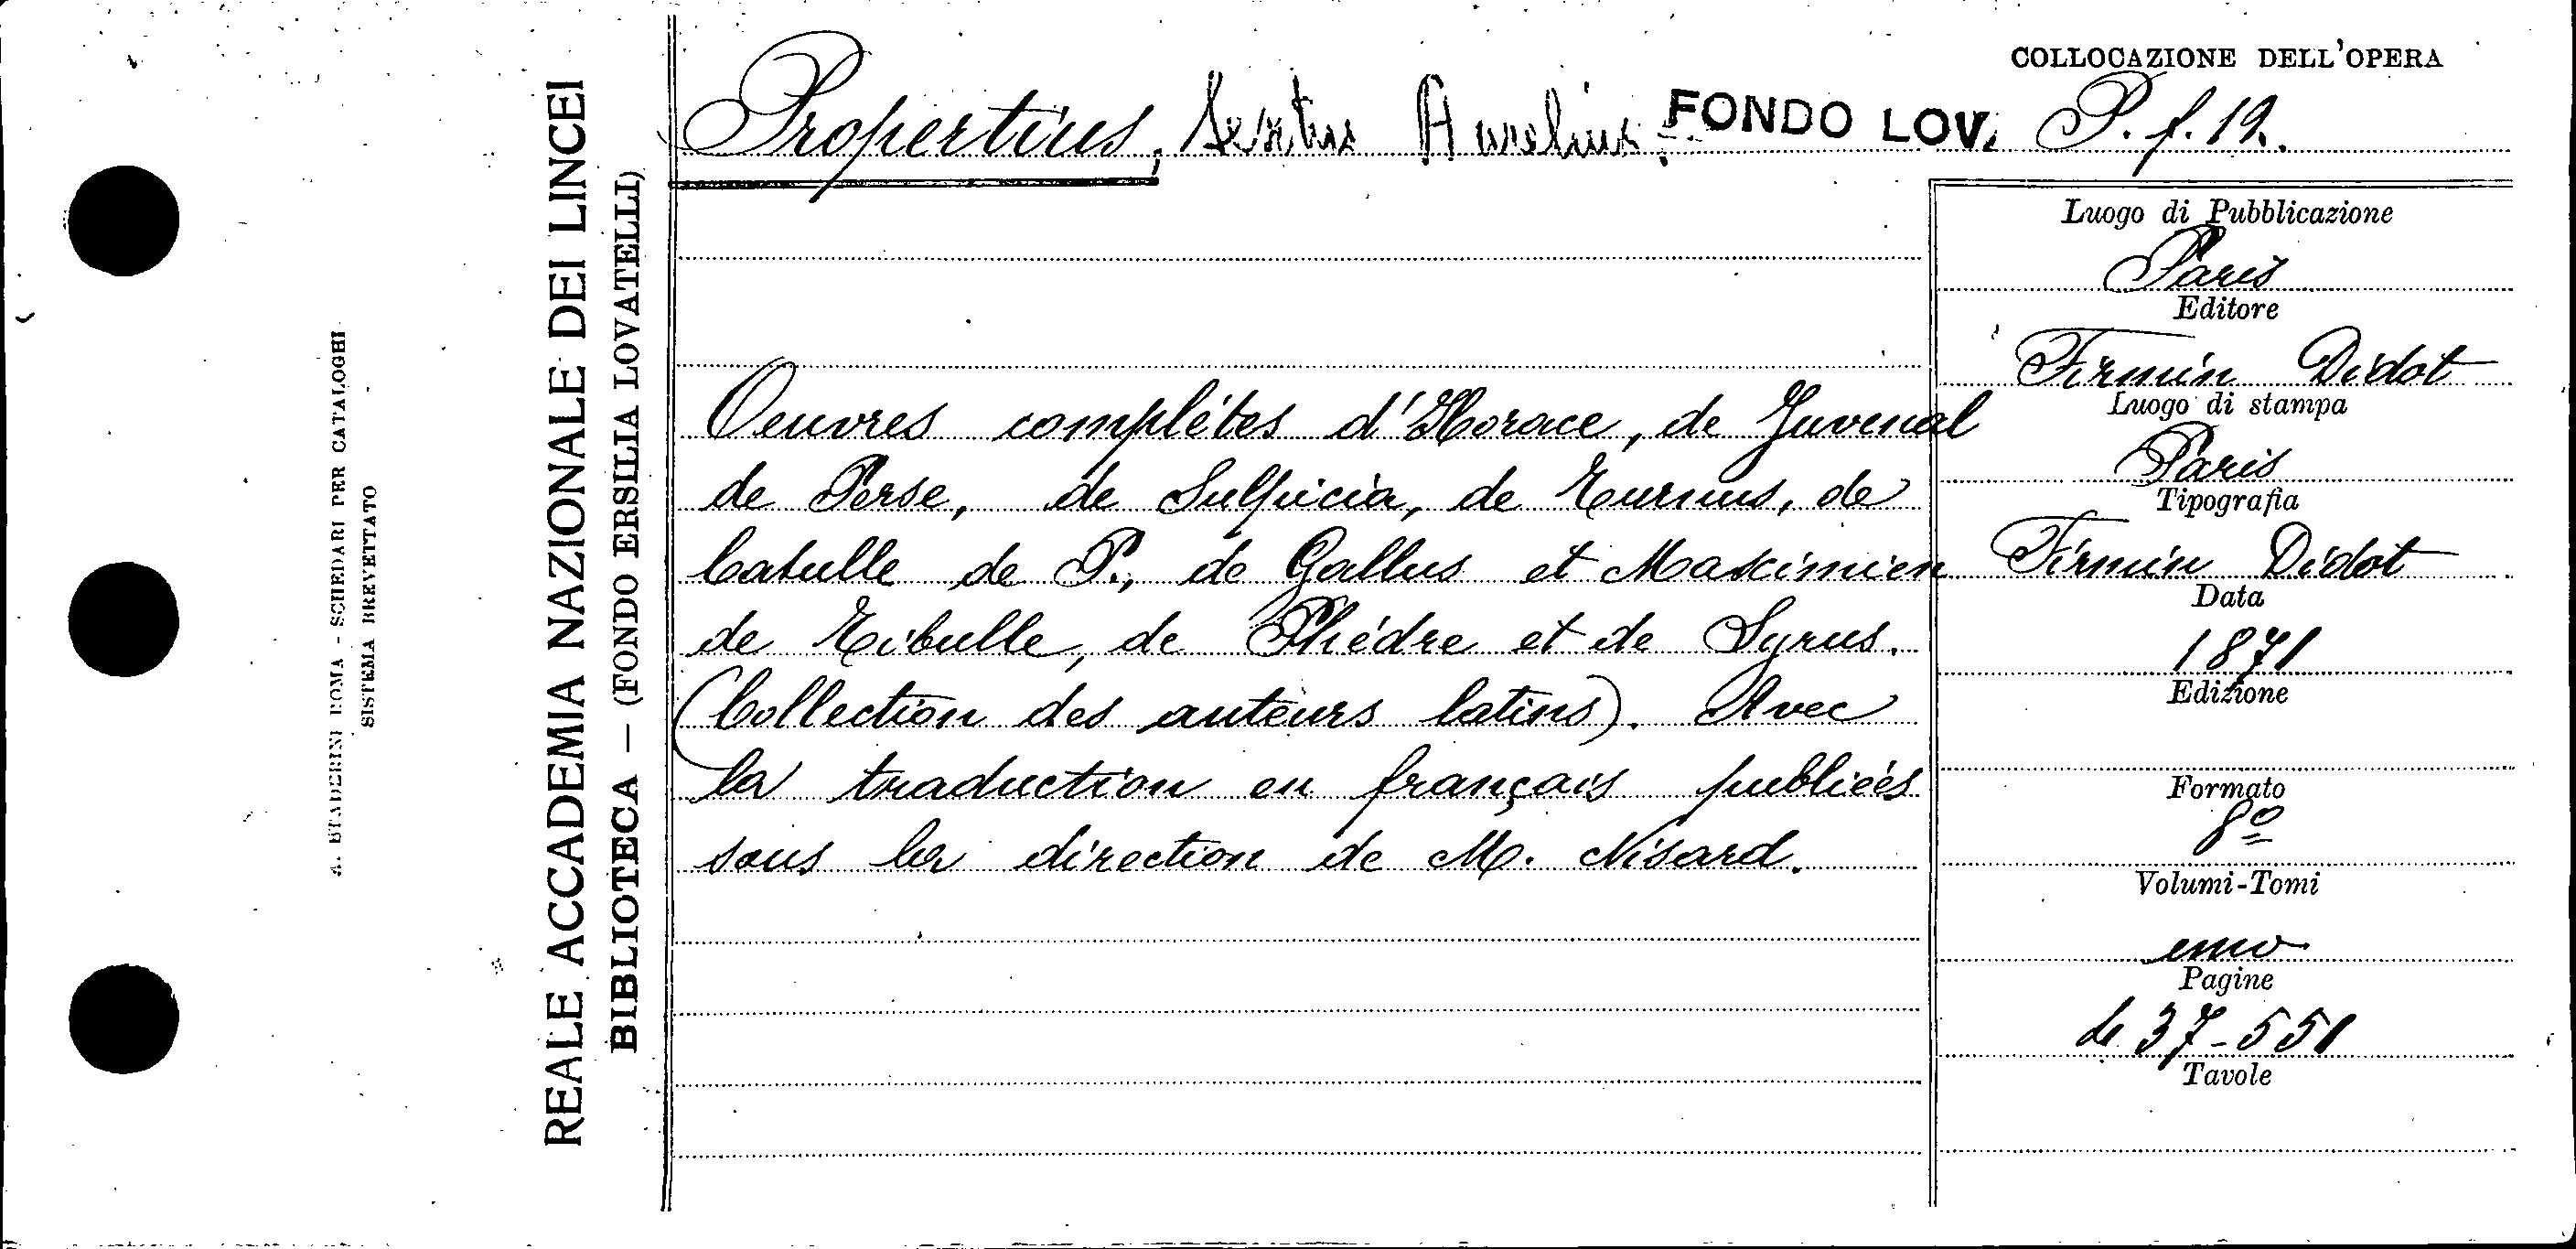 COLLOCAZIONE DELL'OPERA
Propertius, Sextus Aurelius. FONDO LOV. P. f. 19.
REALE ACCADEMIA NAZIONALE DEI LINCEI
BIBLIOTECA — (FONDO ERSILIA LOVATELLI)
A. STADERINI ROMA - SCHEDARI PER CATALOGHI
SISTEMA BREVETTATO
Oeuvres complètes d'Horace, de Juvenal
de Perse, de Sulpicia, de Turnus, de
Catulle de P., de Gallus et Maximien
de Tibulle, de Phédre et de Syrus.
(Collection des auteurs latins). Avec
la traduction en français publiées
sous la direction de M. Nisard.
Luogo di Pubblicazione
Paris
Editore
Firmin Didot
Luogo di stampa
Paris
Tipografia
Firmin Didot
Data
1871
Edizione
Formato
8º
Volumi-Tomi
uno
Pagine
437-551
Tavole